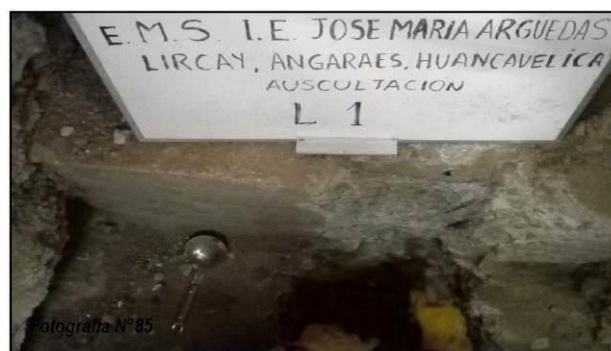 E.M.S. I.E. JOSE MARIA ARGUEDAS
LIRCAY, ANGARAES, HUANCAVELICA
AUSCULTACION
L 1
Fotografía N°85